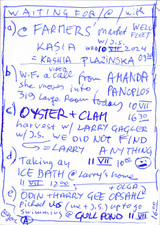 WAITING FOR/@/with
a) @ FARMERS' market WELL
FLEET
KASIA w/J.S.
10 VII 2024
= KASHIA PLAZINSKA
b) W.F. a call from AMANDA
she moves into PANOPLOS
319 Large Room today 10 VII
c) OYSTER + CLAM 16 30
harvest w/ LARRY GAGLER
w/J.S. WE DID NOT FIND
= LARRY ANYTHING
d) Taking an 11 VII 10 00
ICE BATH @ Larry's home
11 VII 12 00 + OLGA
e) ODIN + HARRY GEE OPSAHL
Picked us/me + J.S./up to go
swimming @ GULL POND 11 VII